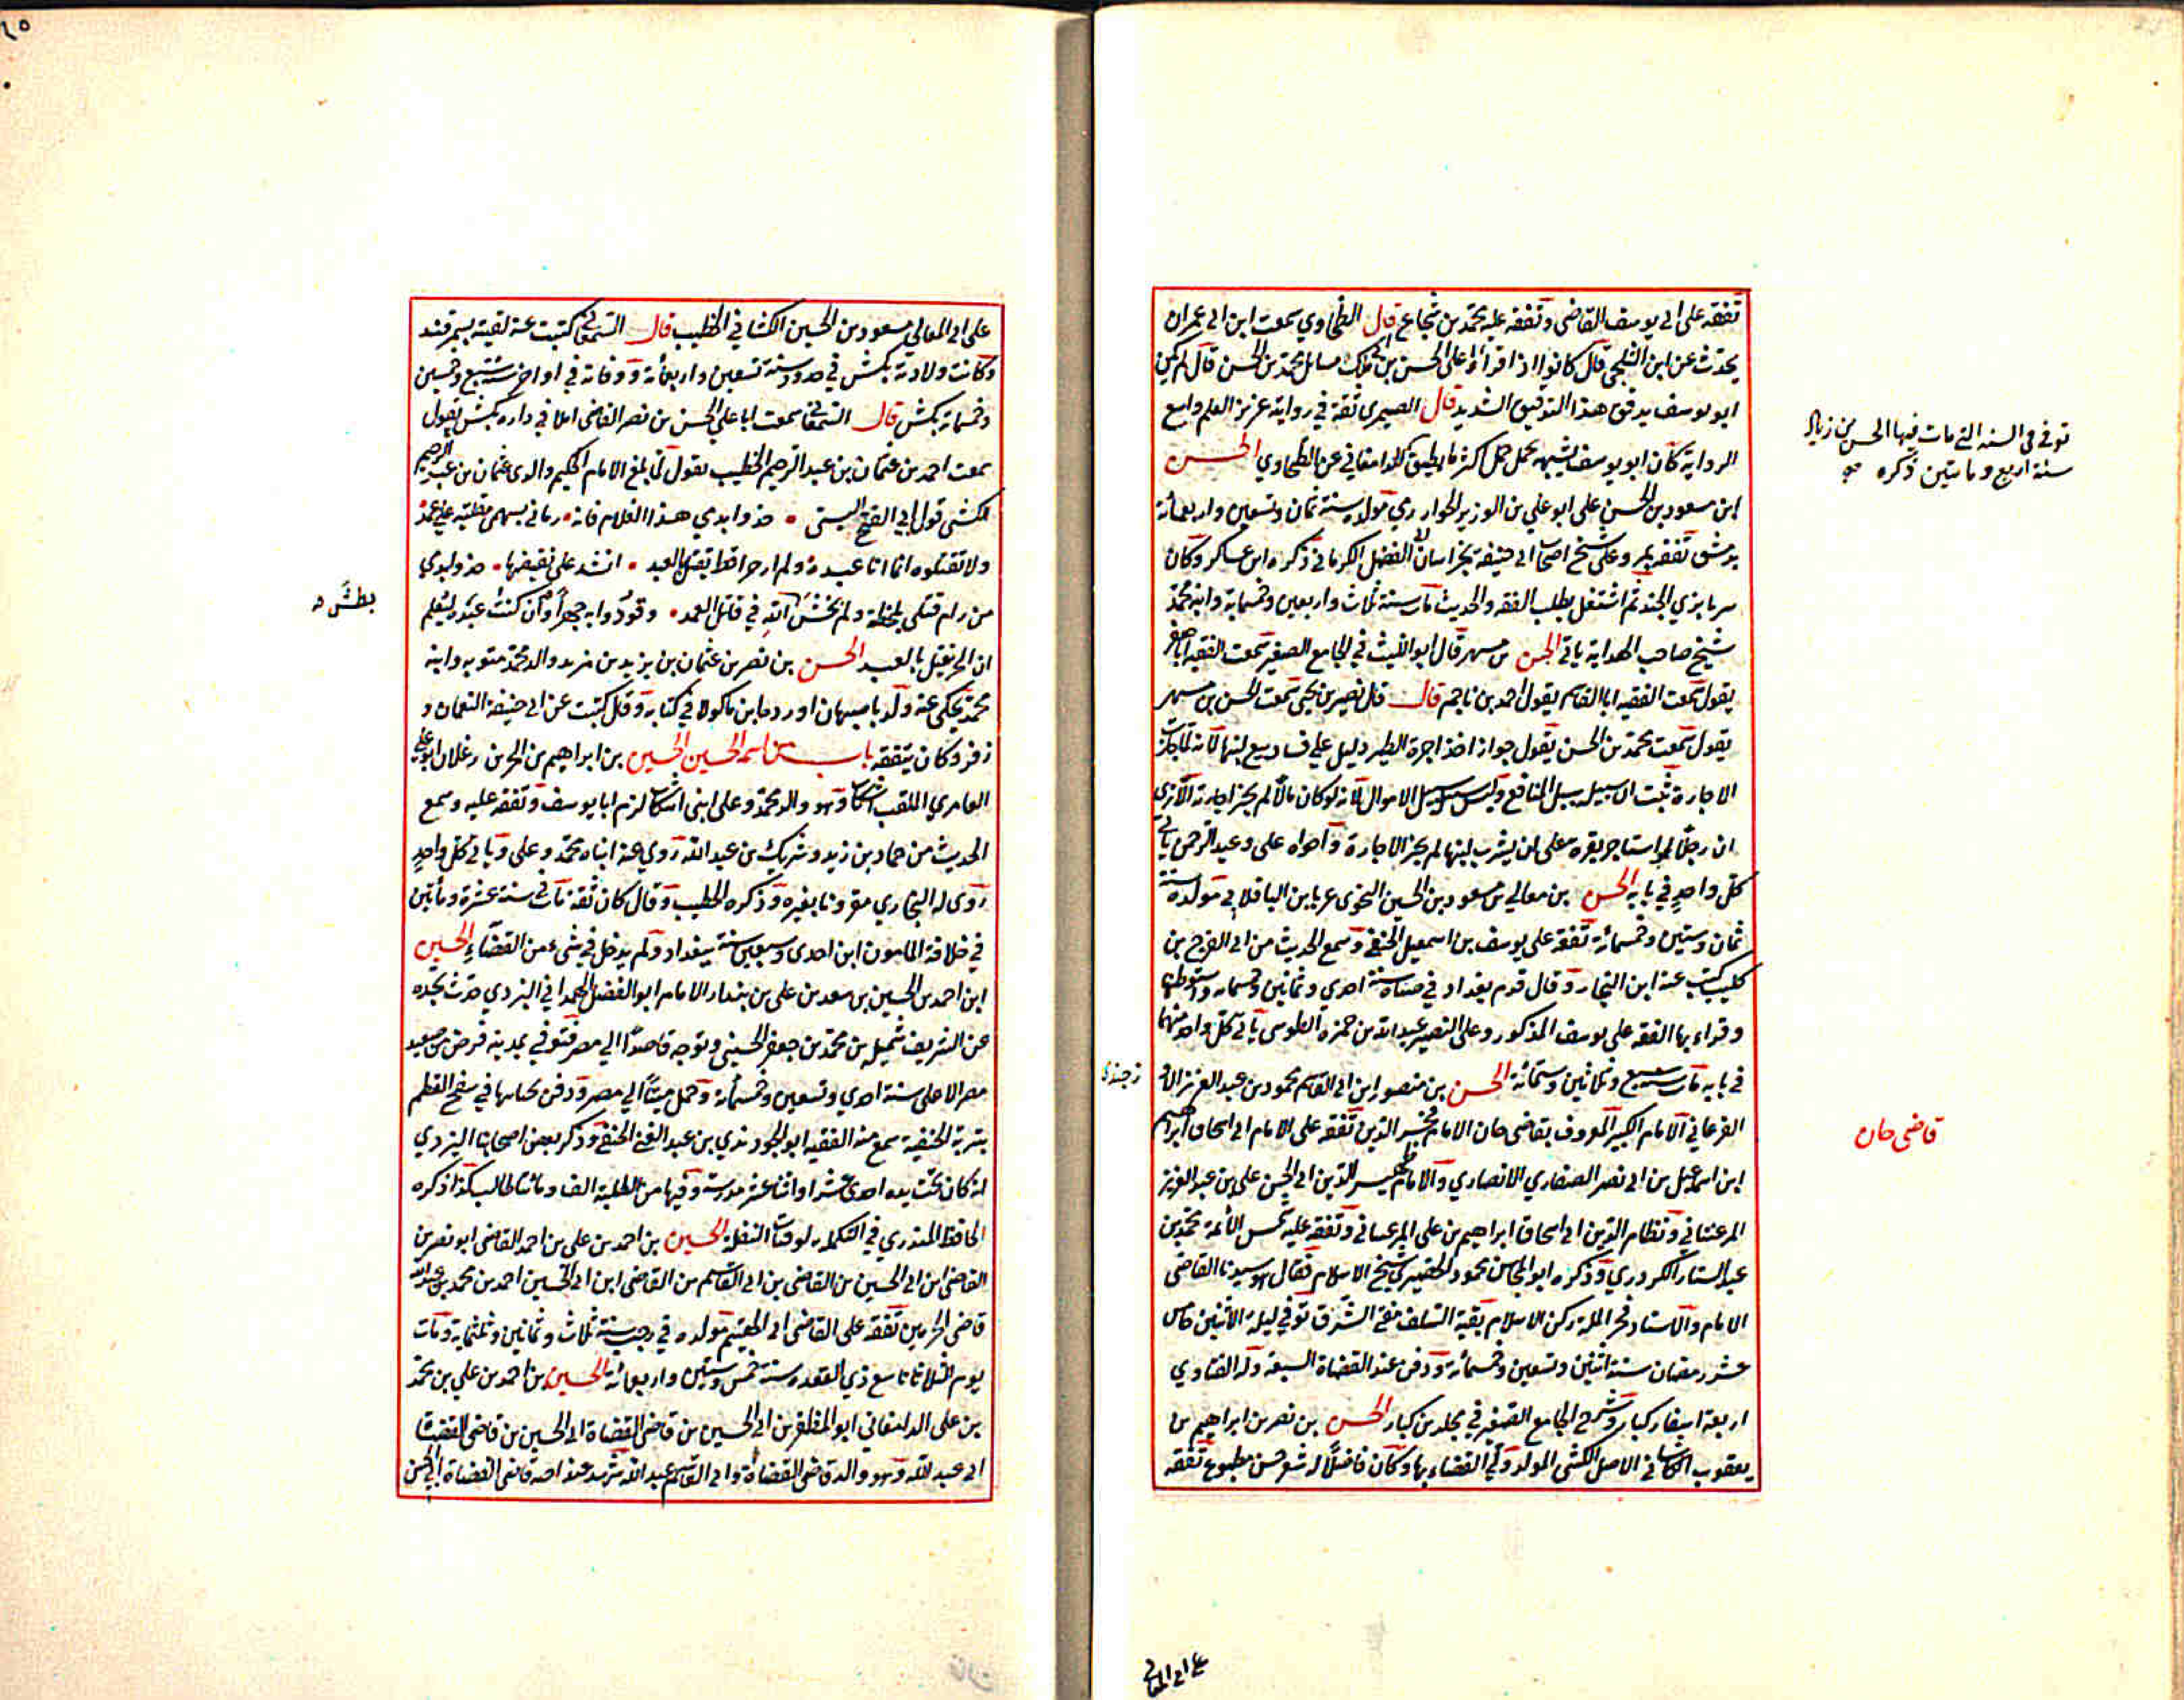 تفقه على ابي يوسف القاضي وتفقه عليه محمد بن شجاع قال الطحاوي سمعت ابن ابي عمران
يحدث عن ابن الثلجي قال كانوا اذا قراوا على الحسن بن ابي مالك مسائل محمد بن الحسن قال لم يكن
ابو يوسف يدقق هذا التدقيق الشديد قال الصيمري ثقة في روايته غزير العلم واسع
الرواية كان ابو يوسف يشبهه بجمل حمل اكثر ما يطيق كذا الدامغاني عن الطحاوي الحسن
ابن مسعود بن الحسن بن علي ابو علي بن الوزير الخوارزمي مولده سنة ثمان وتسعين واربعمائة
بدمشق تفقه بمرو على شيخ اصحاب ابي حنيفة بخراسان ابي الفضل الكرماني ذكره ابن عساكر وكان
بزي الجند ثم اشتغل بطلب الفقه والحديث مات سنة ثلاث واربعين وخمسمائة وابنه محمد
شيخ صاحب الهداية ياتي الحسن بن مسهر قال ابو الليث في الجامع الصغير سمعت الفقيه ابا جعفر
يقول سمعت الفقيه ابا القاسم يقول احمد بن ناجم قال قال نصير بن يحيى سمعت الحسن بن مسهر
يقول سمعت محمد بن الحسن يقول جواز اخذ اجرة الظير دليل على فساد بيع لبنها لانه لما جازت
الاجارة ثبت ان سبيله سبيل المنافع وليس سبيله سبيل الاموال لانه لو كان مالا لم يجز اجارته الا ترى
ان رجلا لو استاجر بقرة على ان يشرب لبنها لم يجز الاجارة واخواه على وعبد الرحمن ياتي
كل واحد في بابه الحسن بن معالي بن مسعود بن الحسين النحوي عرف بابن الباقلاني مولده سنة
ثمان وستين وخمسمائة تفقه على يوسف بن اسمعيل الحنفي وسمع الحديث من ابي الفرج بن
كليب كتب عنه ابن النجار وقال قدم بغداد في صباه سنة احدي وثمانين وخمسمائة واستوطنها
وقراء بها الفقه على يوسف المذكور وعلى النصير عبد الله بن حمزه الطوسي ياتي كل واحد منهما
في بابه مات سنة سبع وثلاثين وستمائة الحسن بن منصور بن ابي القاسم محمود بن عبد العزيز الاو
زجندي
الفرغاني الامام الكبير المعروف بقاضي خان الامام فخر الدين تفقه على الامام ابي اسحاق ابراهيم
ابن اسمعيل بن ابي نصر الصفاري الانصاري والامام ظهير الدين ابي الحسن علي بن عبد العزيز
المرغيناني ونظام الدين ابي اسحاق ابراهيم بن علي المرغيناني وتفقه عليه شمس الائمة محمد بن
عبد الستار الكردري وذكره ابو المحاسن محمود الحصيري شيخ الاسلام فقال هو سيدنا القاضي
الامام والاستاد فخر الملة ركن الاسلام بقية السلف مفتي الشرق توفي ليلة الاثنين خامس
عشر رمضان سنة اثنتين وتسعين وخمسمائة ودفن عند القضاة السبعة وله الفتاوي
اربعة اسفار كبار وشرح الجامع الصغير في مجلدين كبار الحسن بن نصر بن ابراهيم بن
يعقوب الكاساني الاصل الكشي المولد ولي القضاء بها وكان فاضلا له شعر حسن مطبوع تفقه
توفي في السنة التي مات فيها الحسن بن زياد
سنة اربع وماتين ذكره
قاضي خان
على ابي المعالي
على ابي المعالي مسعود بن الحسين الكشاني الخطيب قال السمعاني كتبت عنه لقيته بسمرقند
وكانت ولادته بكش في حدود سنة تسعين واربعمائة ووفاته في اواخر سنة سبع وخمسين
وخمسمائة بكش قال السمعاني سمعت ابا علي الحسن بن نصر القاضي املا في داره بكش يقول
سمعت احمد بن عثمان بن عبد الرحيم الخطيب يقول لما بلغ الامام الحكيم والدي عثمان بن عبد الرحيم
الكشي قول ابي الفتح البستي • خذوا بدمي هذا الغلام فانه • رماني بسهمي مقلتيه على عمد
ولا تقتلوه انما انا عبده ولم ار حرا قط يقتل بالعبد • انشد على نقيضها • خذوا بدمي
من رام قتلى بلحظه ولم يخش الله في قاتل العمد • وقودوا به جهرا وان كنت عبده ليعلم
بطش
ان الحر يقتل بالعبد الحسن بن نصر بن عثمان بن يزيد بن مزيد والد محمد متويه وابنه
محمد يحكي عنه ولد باصبهان اورده ابن ماكولا في كتابه وقال كتبت عن ابي حنيفة النعمان و
زفر وكان يتفقه باب من اسمه الحسين الحسين بن ابراهيم بن الحر بن زعلان ابو علي
العامري الملقب اشكاب وهو والد محمد وعلى ابني اشكاب لزم ابا يوسف وتفقه عليه وسمع
الحديث من حماد بن زيد وشريك بن عبد الله روي عنه ابناه محمد وعلى وياتي كل واحد
روى له البخاري مقرونا بغيره وذكره الخطيب وقال كان ثقة مات في سنة عشرة ومأتين
في خلافة المامون ابن احدى وسبعين سنة ببغداد ولم يدخل في شيء من القضاء الحسين
ابن احمد بن الحسين بن سعد بن علي بن بندار الامام ابو الفضل الهمداني اليزدي حدث بجده
عن الشريف شميلة بن محمد بن جعفر الحسيني وتوجه قاصدا الى مصر فتوفي بمدينة قوص من صعيد
مصر الاعلى سنة احدي وتسعين وخمسمائة وحمل ميتا الي مصر ودفن بها في سفح المقطم
بتربة الحنفية سمع منه الفقيه ابو الجود ندي بن عبد الغني الحنفي وذكر بعض اصحابنا اليزدي
انه كان تحت يده احدى عشر او اثنا عشر مدرسة وفيها من الطلبة الف ومائتا طالب كذا ذكره
الحافظ المنذري في التكملة لوفيات النقلة الحسين بن احمد بن علي بن احمد القاضي ابو نصر بن
القاضي ابن ابي الحسين بن القاضي بن ابي القاسم بن القاضي ابن ابي الحسين احمد بن محمد بن عبد الله
قاضي الحرمين تفقه على القاضي ابي الهيثم مولده في رجب سنة ثلاث وثمانين وثلثمائة ومات
يوم الثلاثا تاسع ذي القعدة سنة خمس وستين واربعمائة الحسين بن احمد بن علي بن محمد
بن علي الدامغاني ابو المظفر بن ابي الحسين بن قاضي القضاة ابي الحسين بن قاضي القضاة
ابي عبد الله وهو والد قاضي القضاة وابي القاسم عبد الله شهد عند اخيه قاضي القضاة ابي الحسن